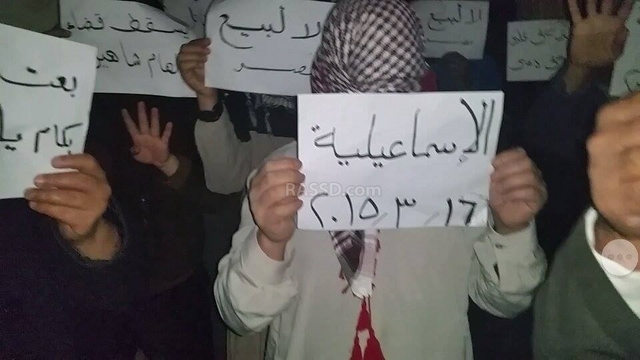 يسقط قضاء
شاهين
لا لبيع
مصر
لا لبيع
بعت
بكام يا
الإسماعيلية
RASSD.com
١٦ - ٣ - ٢٠١٥